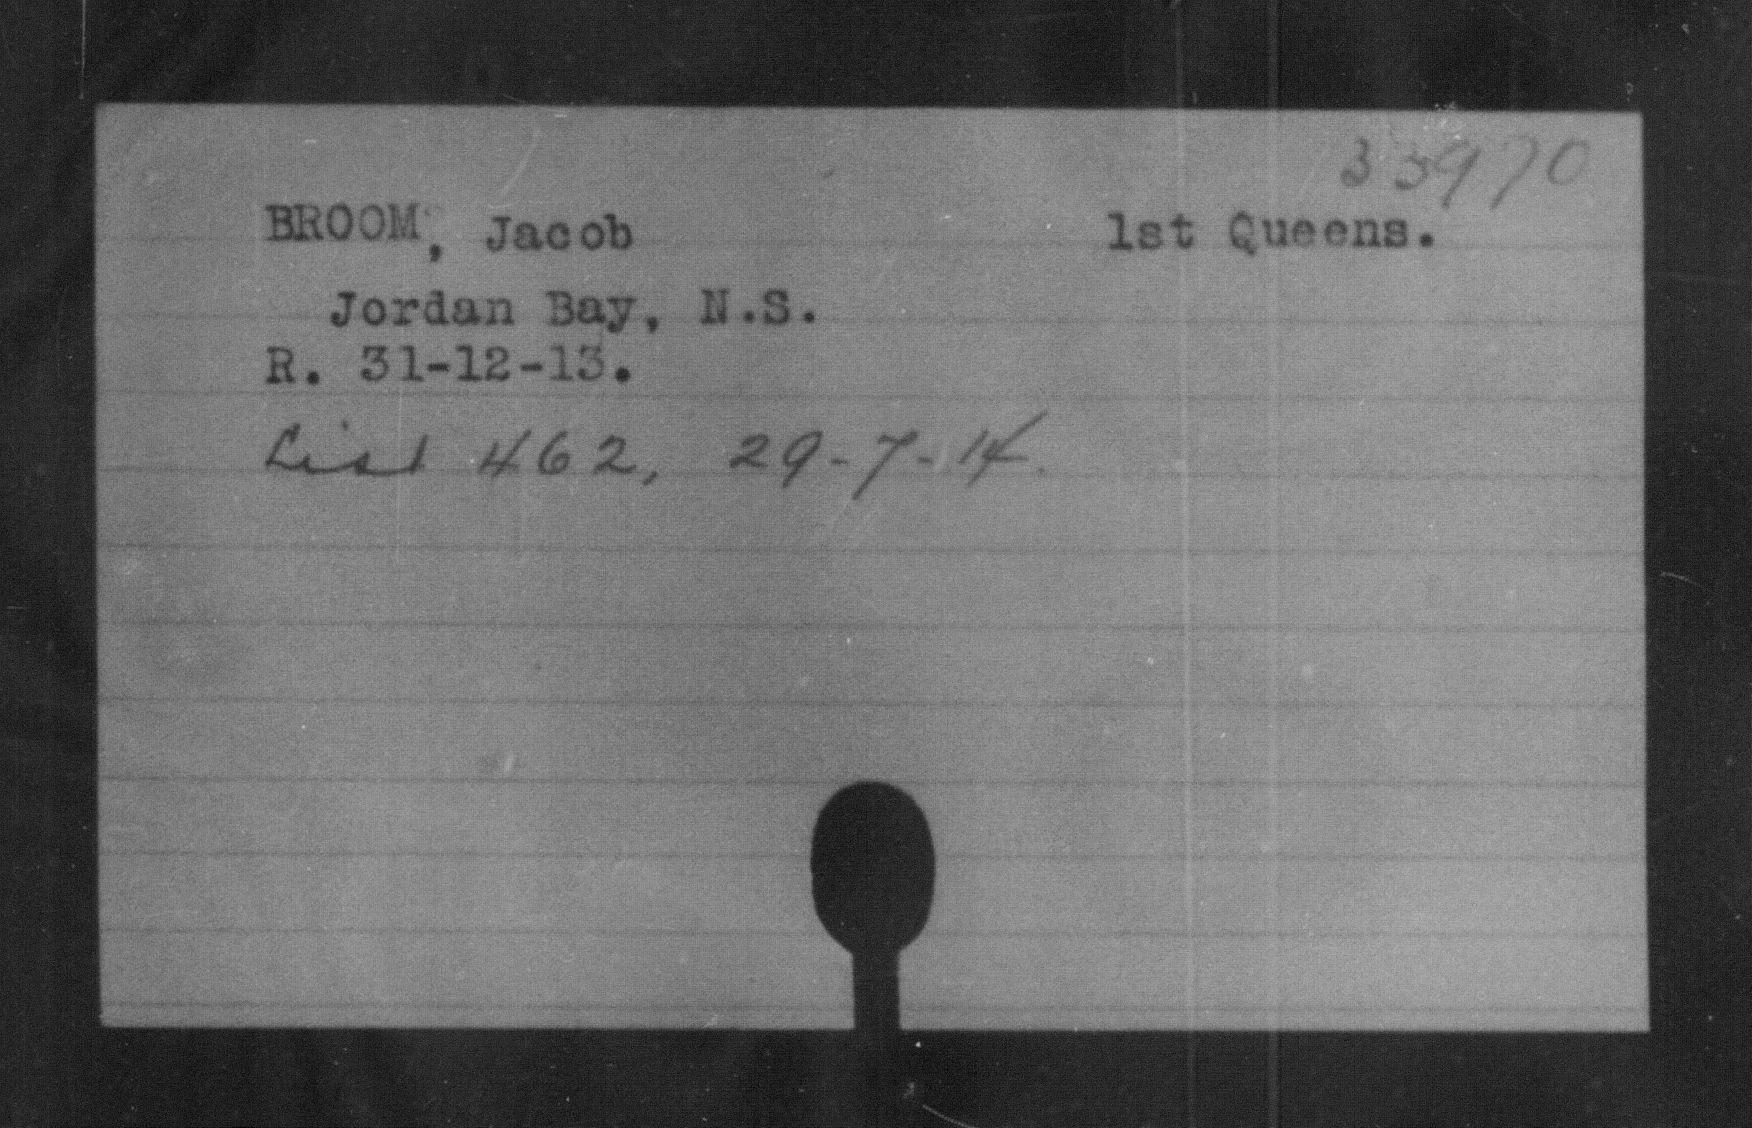 33970
BROOM, Jacob 1st Queens.
Jordan Bay, N.S.
R. 31-12-13.
List 462, 29-7-14.